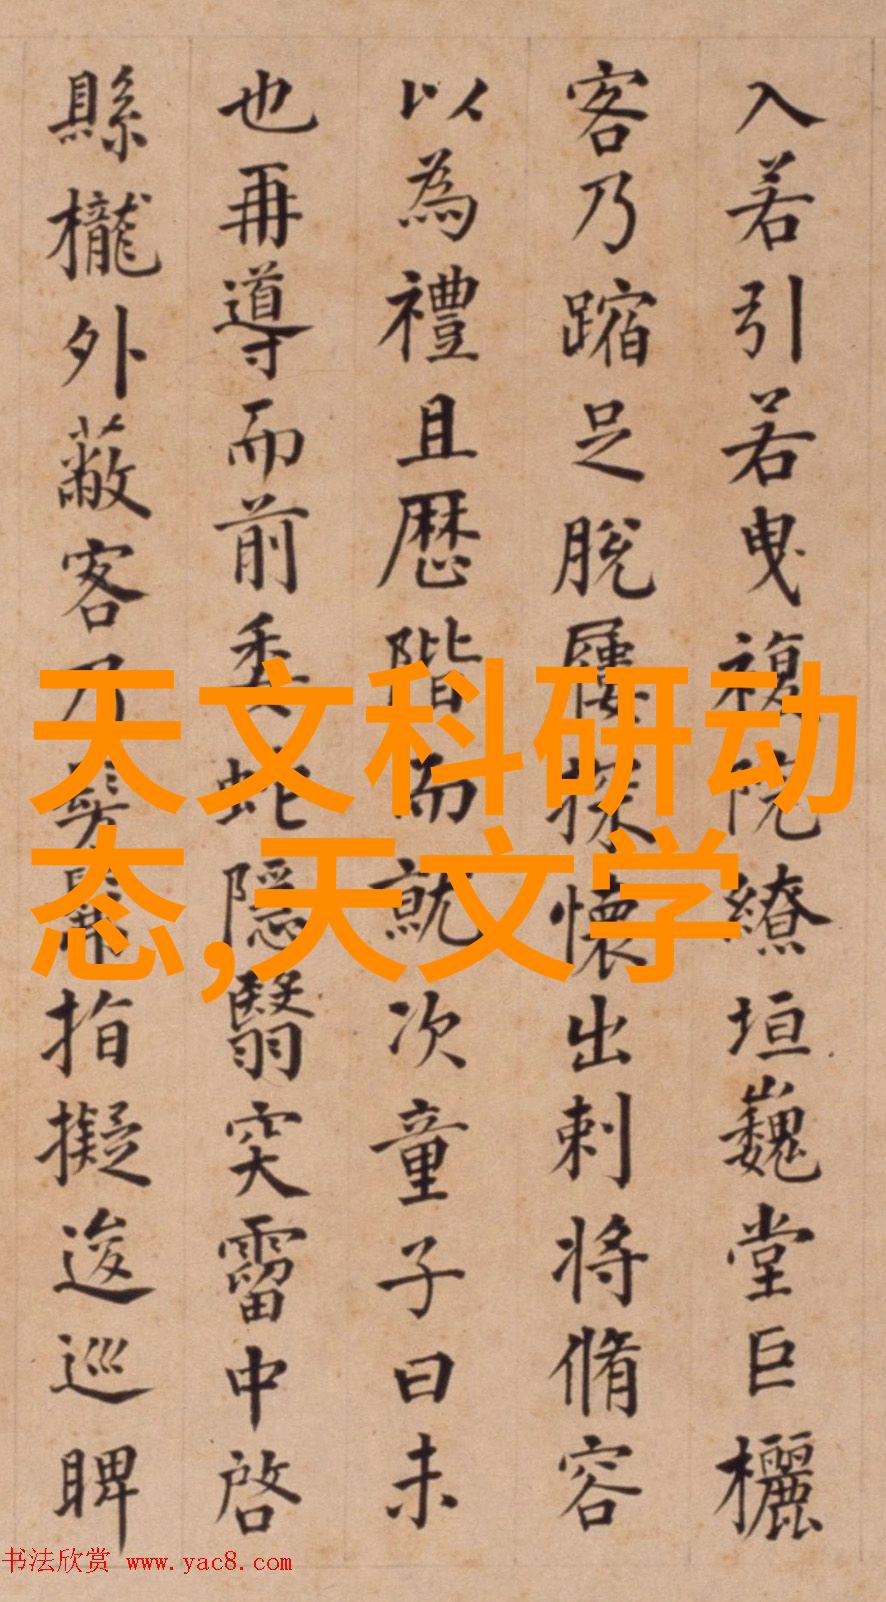 入若引若曳複院繚垣巍堂巨欐
客乃蹜足脫屨探懷出刺將脩容
以為禮且歷階而就次童子曰未
也再導而前委蛇隱翳突霤中啓
縣櫳外蔽客乃髣髴指擬逡巡睥
天文科研动
态,天文学
书法欣赏 www.yac8.com